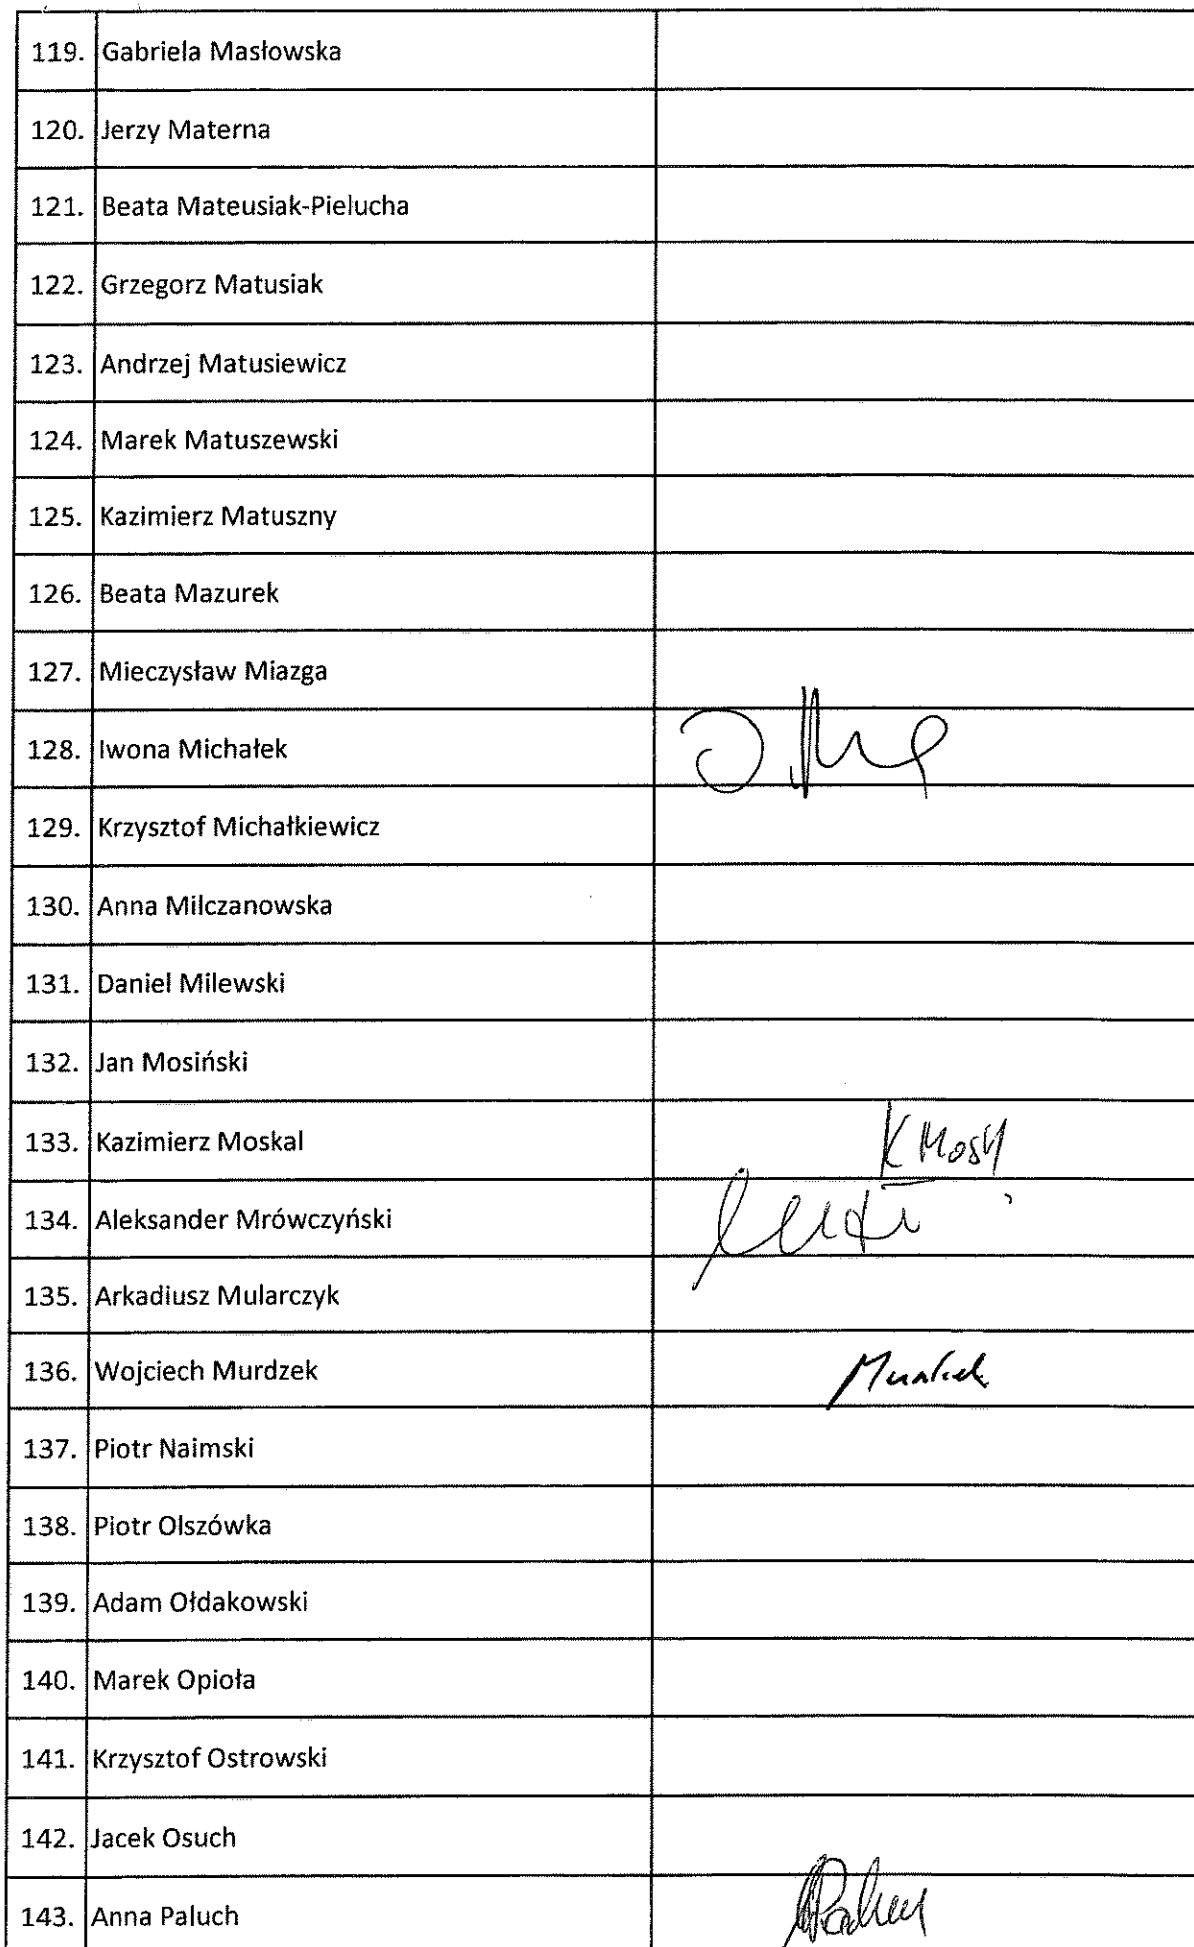 119. Gabriela Masłowska
120. Jerzy Materna
121. Beata Mateusiak-Pielucha
122. Grzegorz Matusiak
123. Andrzej Matusiewicz
124. Marek Matuszewski
125. Kazimierz Matuszny
126. Beata Mazurek
127. Mieczysław Miazga
128. Iwona Michałek
129. Krzysztof Michałkiewicz
130. Anna Milczanowska
131. Daniel Milewski
132. Jan Mosiński
133. Kazimierz Moskal
134. Aleksander Mrówczyński
135. Arkadiusz Mularczyk
136. Wojciech Murdzek
137. Piotr Naimski
138. Piotr Olszówka
139. Adam Ołdakowski
140. Marek Opioła
141. Krzysztof Ostrowski
142. Jacek Osuch
143. Anna Paluch